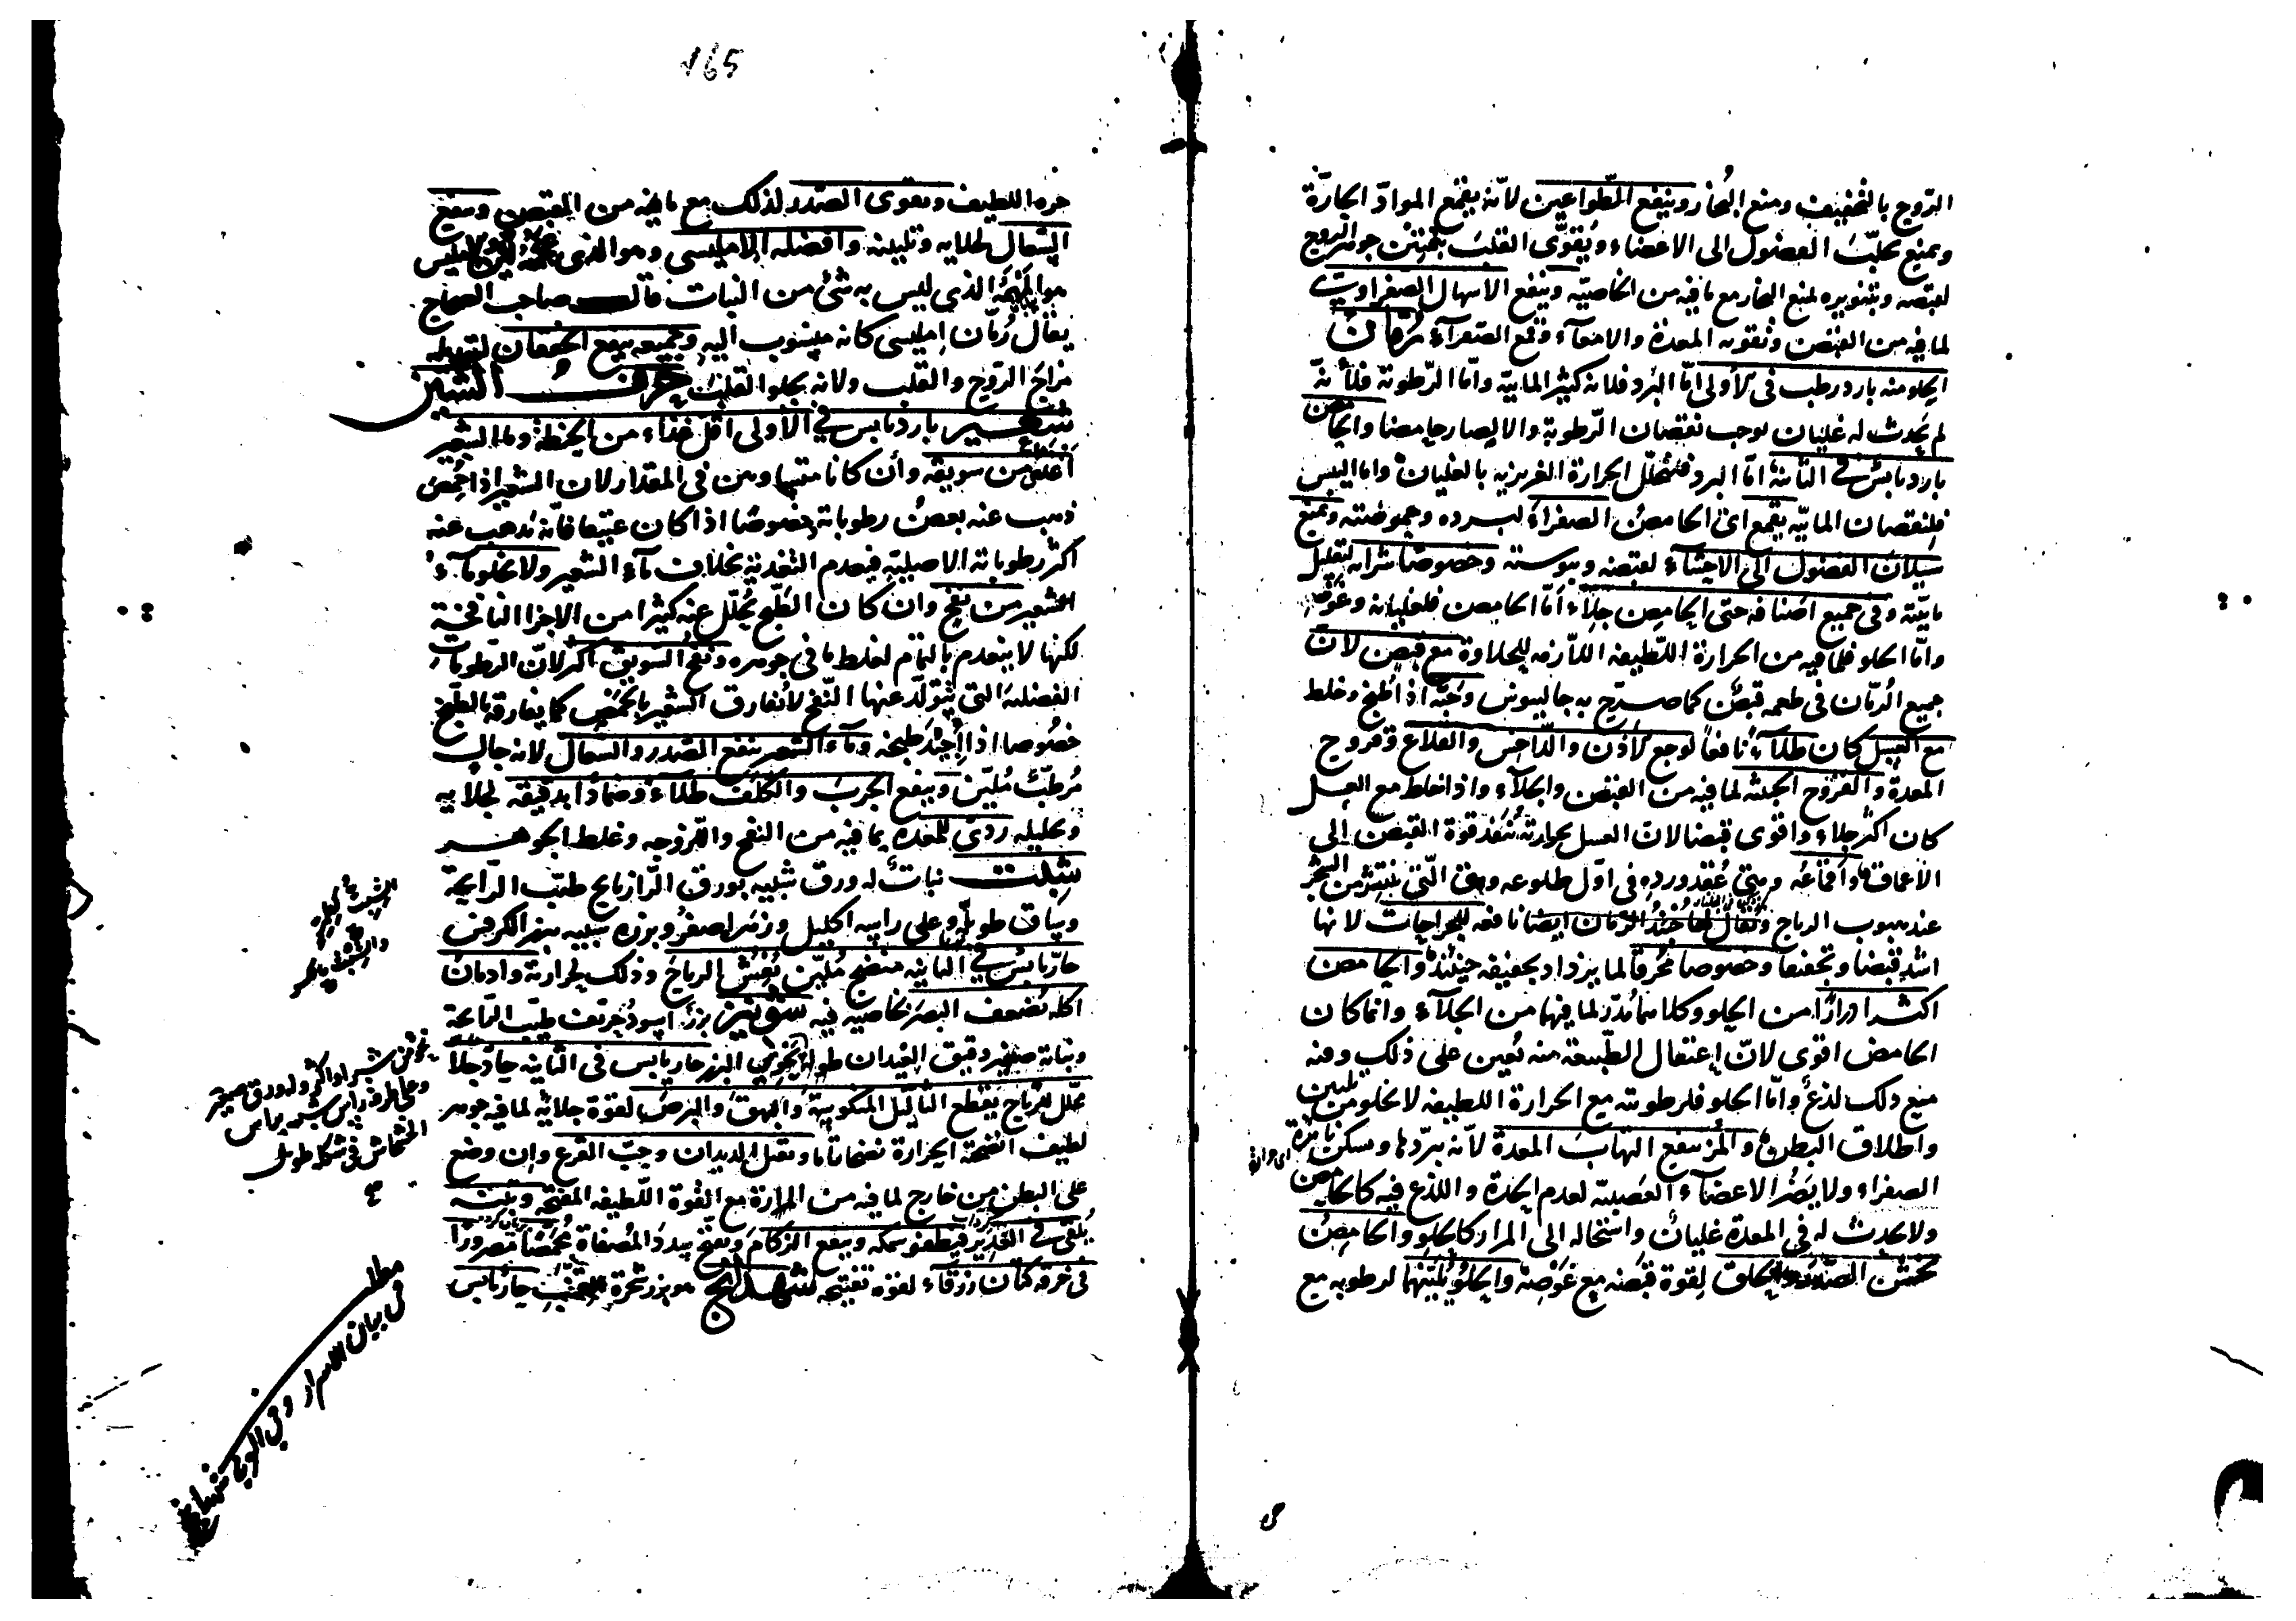 الروح بالتخفيف ومنع البخار وينفع الطواعين لانه يقمع المواد الحارة
ويمنع تحلب الفضول الى الاعضاء ويقوى القلب بتمتين جوهر الروح
لقبضه وبتنويره لمنع البخار مع ما فيه من الخاصية وينفع الاسهال الصفراوى
لما فيه من القبض وتقوية المعدة والامعاء وقمع الصفراء رمان
الحلو منه بارد رطب فى الاولى اما البرد فلانه كثير المائية واما الرطوبة فلانه
لم يحدث له غليان يوجب نقصان الرطوبة والا لصار حامضا والحامض
بارد يابس فى الثانية اما البرد فلتحلل الحرارة الغريزية بالغليان واما اليبس
فلنقصان المائية يقمع اى الحامض الصفراء لبرده وحموضته ويمنع
سيلان الفضول الى الاحشاء لقبضه ويبوسته وخصوصا شرابه لتقليل
مائيته وفى جميع اصنافه حتى الحامض جلاء اما الحامض فلغليانه وغوصه
واما الحلو فلما فيه من الحرارة اللطيفة اللازمة للحلاوة مع قبض لان
جميع الرمان فى طعمه قبض كما صرح به جالينوس وحبه اذا طبخ وخلط
مع العسل كان طلاء نافعا لوجع الاذن والداحس والقلاع وقروح
المعدة والقروح الخبيثة لما فيه من القبض والجلاء واذا خلط مع العسل
كان اكثر جلاء واقوى قبضا لان العسل بحرارته تنفذ قوة القبض الى
الاعماق واقماعه ومتى عقد ورده فى اول طلوعه وهى التى تنتثر من الشجر
عند هبوب الرياح ويقال لها جنبذ الرمان ايضا نافعه للجراحات لانها
اشد قبضا وتجفيفا وخصوصا محرقا لما يزداد تجفيفه حينئذ والحامض
اكثر ادرارا من الحلو وكلاهما مدر لما فيهما من الجلاء وانما كان
الحامض اقوى لان اعتقال الطبيعة منه تعين على ذلك وفيه
مع ذلك لذع واما الحلو فلرطوبته مع الحرارة اللطيفة لا يخلو من تليين
واطلاق البطن والمز ينفع التهاب المعدة لانه يبردها ويسكن ثائرة
الصفراء ولا يضر الاعضاء العصبية لعدم الحدة واللذع فيه كالحامض
ولا يحدث له فى المعدة غليان واستحالة الى المرار كالحلو والحامض
يخشن الصدر والحلق لقوة قبضه مع غوصه والحلو يلينهما لرطوبه مع
165
حره اللطيف ويقوى الصدر لذلك مع ما فيه من القبض وينفع
السعال لجلائه وتليينه وافضله الامليسى وهو الذى
هو الذى ليس به شئ من النبات قال صاحب الصحاح
يقال رمان امليسى كانه منسوب اليه وجميعه ينفع الخفقان لتعديله
مزاج الروح والقلب ولانه يجلو القلب حرف الشين
شعير بارد يابس فى الاولى اقل غذاء من الحنطة وماء الشعير
اغذى من سويقه وان كانا متساويين فى المقدار لان الشعير اذا حمص
ذهب عنه بعض رطوباته خصوصا اذا كان عتيقا فانه يذهب عنه
اكثر رطوباته الاصلية فيعدم التغذية بخلاف ماء الشعير ولا يخلو ماء
الشعير من نفخ وان كان الطبخ يحلل عنه كثيرا من الاجزا النافخة
لكنها لا ينعدم بالتمام لغلظ ما فى جوهره ونفخ السويق اكثر لان الرطوبات
الفضلية التى يتولد عنها النفخ لا تفارق الشعير بالحمص كما يفارقه بالطبخ
خصوصا اذا اجيد طبخه وماء الشعير ينفع الصدر والسعال لانه جال
مرطب ملين وينفع الجرب والكلف طلاء وضمادا بدقيقه لجلائه
وتحليله ردى للمعدة بما فيه من النفخ واللزوجه وغلظ الجوهر
شبت نبات له ورق شبيه بورق الرازيانج طيب الرايحة
وساق طويله وعلى راسه اكليل وزهر اصفر وبزره شبيه ببزر الكرفس
حار يابس فى الثانية منضج ملين يفش الرياح وذلك لحرارته وادمان
اكله يضعف البصر لخاصيه فيه شونيز بزر اسود حريف طيب الرائحة
ونباته صغير دقيق العيدان طوله البزر حار يابس فى الثانية حاد جلاء
محلل للرياح يقطع الثاليل المنكوسة والبهق والبرص لقوة جلائه لما فيه جوهر
لطيف الحرارة نضجا تاما ويقتل الديدان وحب القرع وان وضع
على البطن من خارج لما فيه من المرارة مع القوة اللطيفة المفتحة وتبنه
يلقى فى الغدير فيطفو سمكه وينفع الزكام ويفتح سدد المصفاة محمصا مصرورا
فى خرقة كتان زرقاء لقوة تفتيحه شهدانج هو بزر شجرة القنب حار يابس
مطلب
فى بيان الاسرار